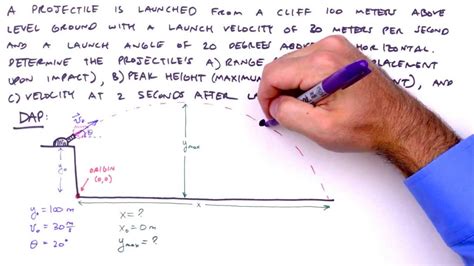 A PROJECTILE IS LAUNCHED FROM A CLIFF 100 METERS ABOVE
LEVEL GROUND WITH A LAUNCH VELOCITY OF 30 METERS PER SECOND
AND A LAUNCH ANGLE OF 20 DEGREES ABOVE HORIZONTAL.
DETERMINE THE PROJECTILE'S A) RANGE PLACEMENT
UPON IMPACT), B) PEAK HEIGHT (MAXIMUM ENT), AND
C) VELOCITY AT 2 SECONDS AFTER
DAP:
v₀
θ
y₀
ymax
ORIGIN
(0,0)
x
y₀ = 100 m
x = ?
v₀ = 30 m/s
x₀ = 0 m
θ = 20°
ymax = ?